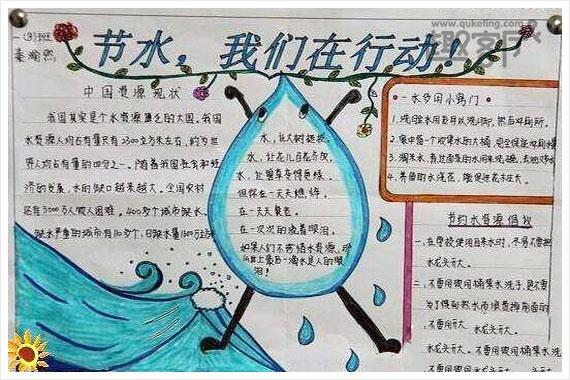 www.quketing.com
趣客网
一(3)班
节水，我们在行动！
中国资源现状
我国其实是个水资源匮乏的大国，我国
水资源人均占有量只有2300立方米左右，约为世
界人均占有量的四分之一。随着我国
济的发展，水的缺口越来越大。全国农村
还有3000万人饮水困难。400多个城市缺水，
缺水严重的城市有110多个，日缺水量1600万立方
水，让大树挺拔。
水，让花儿百花齐放。
水，让
但你在一天天
在一天天
在一次次的
如果人们不珍惜水资源，那
么世上最后一滴水是人的眼
泪！
一水多用小窍门
1.洗脸水用后可以洗脚，然后冲厕所。
2.家中每个收集水的大桶，完全保证冲厕
3.淘米水、煮过面条的水用来洗碗，去油
4.养鱼的水浇花，能促进花木生长。
节约水资源倡议
一、在学校使用自来水时，尽量不要把
水龙头开大。
二、不要用使用桶集水洗手，是不要
为了
一、不要用开大，水龙头开大。
水龙头开大。不要用使用桶集水洗